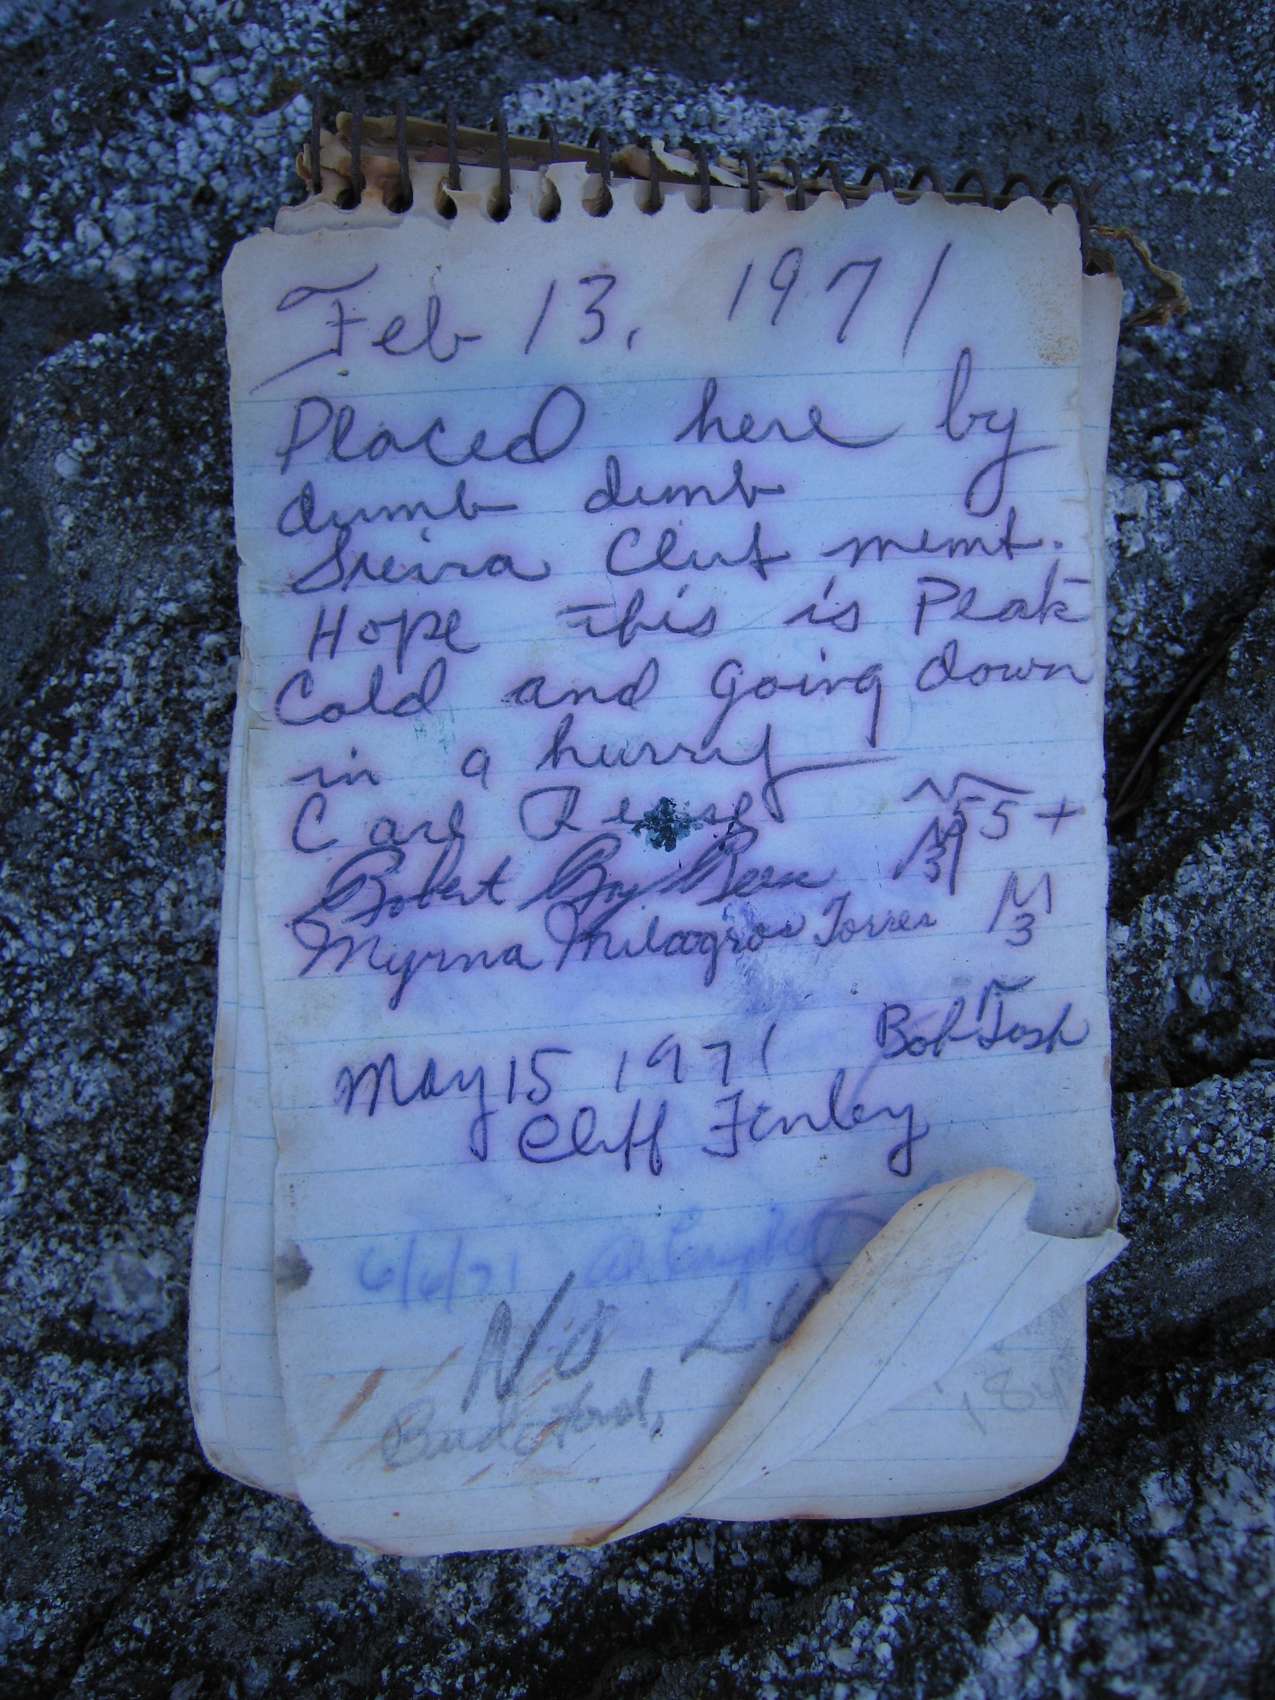 Feb 13, 1971
Placed here by
dumb dumb
Sierra Club memt.
Hope this is Peak
Cold and going down
in a hurry
55 +
Robert Roy Reese M 3
Myrna Milagros Torres M 3
May 15 1971 Bob Tosh
Cliff Finley
6/6/71
No
Bud
84